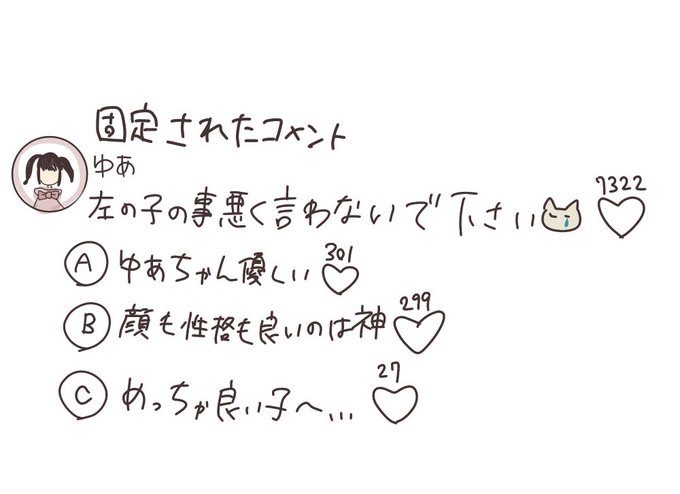 固定されたコメント
ゆあ
左の子の事悪く言わないで下さい
7322
A ゆあちゃん優しい 301
B 顔も性格も良いのは神 299
C めっちゃ良い子へ... 27